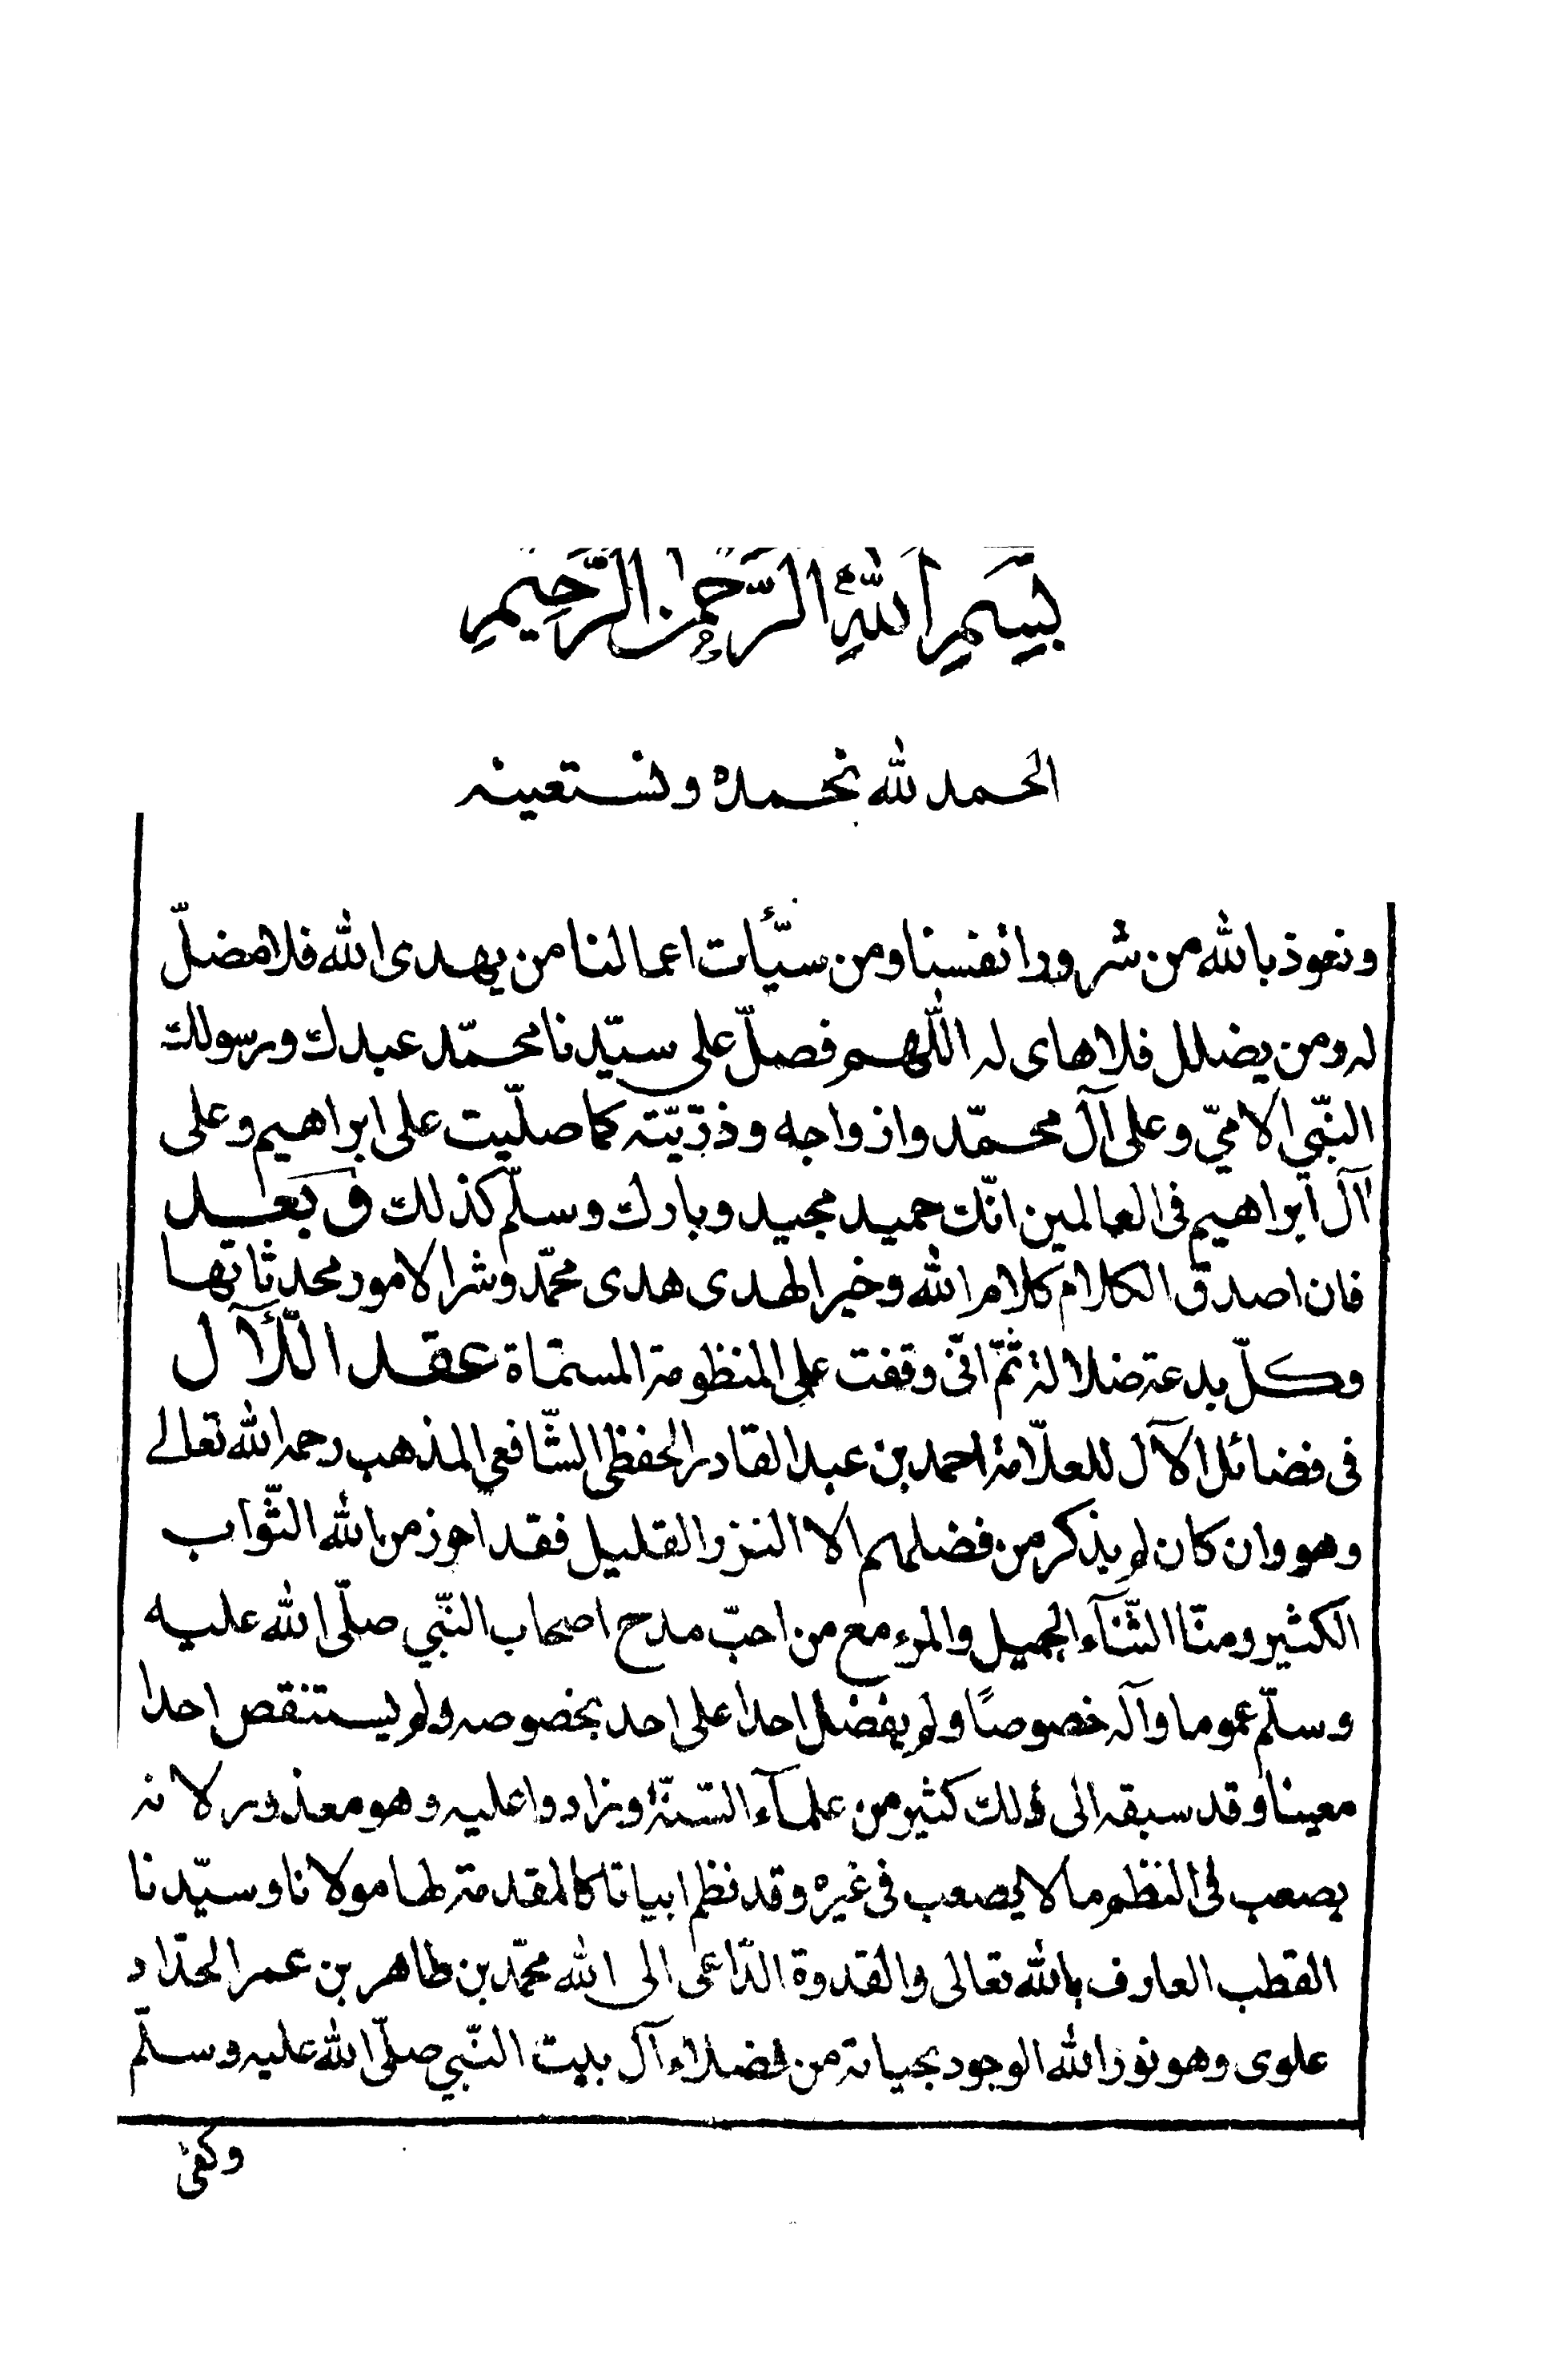 بِسْمِ اللّٰهِ الرَّحْمٰنِ الرَّحِيمِ
الحمد لله نحمده ونستعينه
ونعوذ بالله من شرور انفسنا ومن سيّئات اعمالنا من يهدى الله فلا مضلّ
له ومن يضلل فلا هاى له اللّهم فصلّ على سيّدنا محمّد عبدك ورسولك
النّبي الامّي وعلى آل محمّد وازواجه وذرّيّته كما صلّيت على ابراهيم وعلى
آل ابراهيم فى العالمين انّك حميد مجيد وبارك وسلّم كذلك وبعد
فان اصدق الكلام كلام الله وخير الهدى هدى محمّد وشر الامور محدثاتها
وكلّ بدعة ضلالة ثمّ انّى وقفت على المنظومة المسمّاة عقد اللّآل
فى فضائل الآل للعلّامة احمد بن عبد القادر الحفظى الشّافعى المذهب رحمه الله تعالى
وهو وان كان لم يذكر من فضلهم الا النزر القليل فقد احوز من الله الثّواب
الكثير ومنّا الثّنآء الجميل والمرء مع من احبّ مدح اصحاب النّبي صلّى الله عليه
وسلّم عموما وآله خصوصًا ولم يفضل احدا على احد بخصوصه ولم يستنقص احدا
معينا وقد سبقه الى ذلك كثير من علمآء السّنّة وزادوا عليه وهو معذور لانه
يصعب فى النظم ما لا يصعب فى غيره وقد نظم ابياتا كالمقدمة لها مولانا وسيّدنا
القطب العارف بالله تعالى والقدوة الدّاعى الى الله محمّد بن طاهر بن عمر الحدّاد
علوى وهو نوّر الله الوجود بحياته من فضلاء آل بيت النّبي صلّى الله عليه وسلّم
وكفى